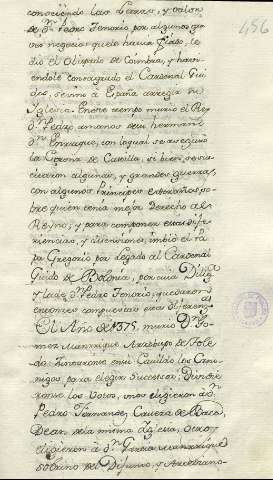 456
conociendo las letras, y valor
de Dn. Pedro Tenorio por algunos gra
ves negocios que le havia fiado, le
dio el Obispado de Coimbra, y havi-
endole consagrado el Cardenal Gui
do, se vino à España à regir su
Yglesia. En este tiempo murió el Rey
Dn. Pedro à manos de su hermano
Dn. Enrique, con lo qual se aseguró
la Corona de Castilla, si bien se su-
citaron algunas, y grandes guerras,
con algunos Principes estraños so-
bre quien tenia mejor derecho al
Reyno; y para componer estas dife
rencias, y disensiones, imbió el Pa
pa Gregorio por legado al Cardenal
Guido de Bolonia, por cuia Dilig.
y la de Dn. Pedro Tenorio, quedaron
entonces compuestas estas diferenc.
El Año de 1375, murió Dn. Go-
mez Manrrique Arzobispo de Tole
do: Juntaronse en su Cavildo los Cano-
nigos para elegir Succesor; Dividie
ronse los Votos, unos eligieron à Dn.
Pedro Fernandez, Caveza de Baca,
Dean de la misma Yglesia, otros
eligieron à Dn. Garcia Manrrique
sobrino del Difunto, y Arcediano